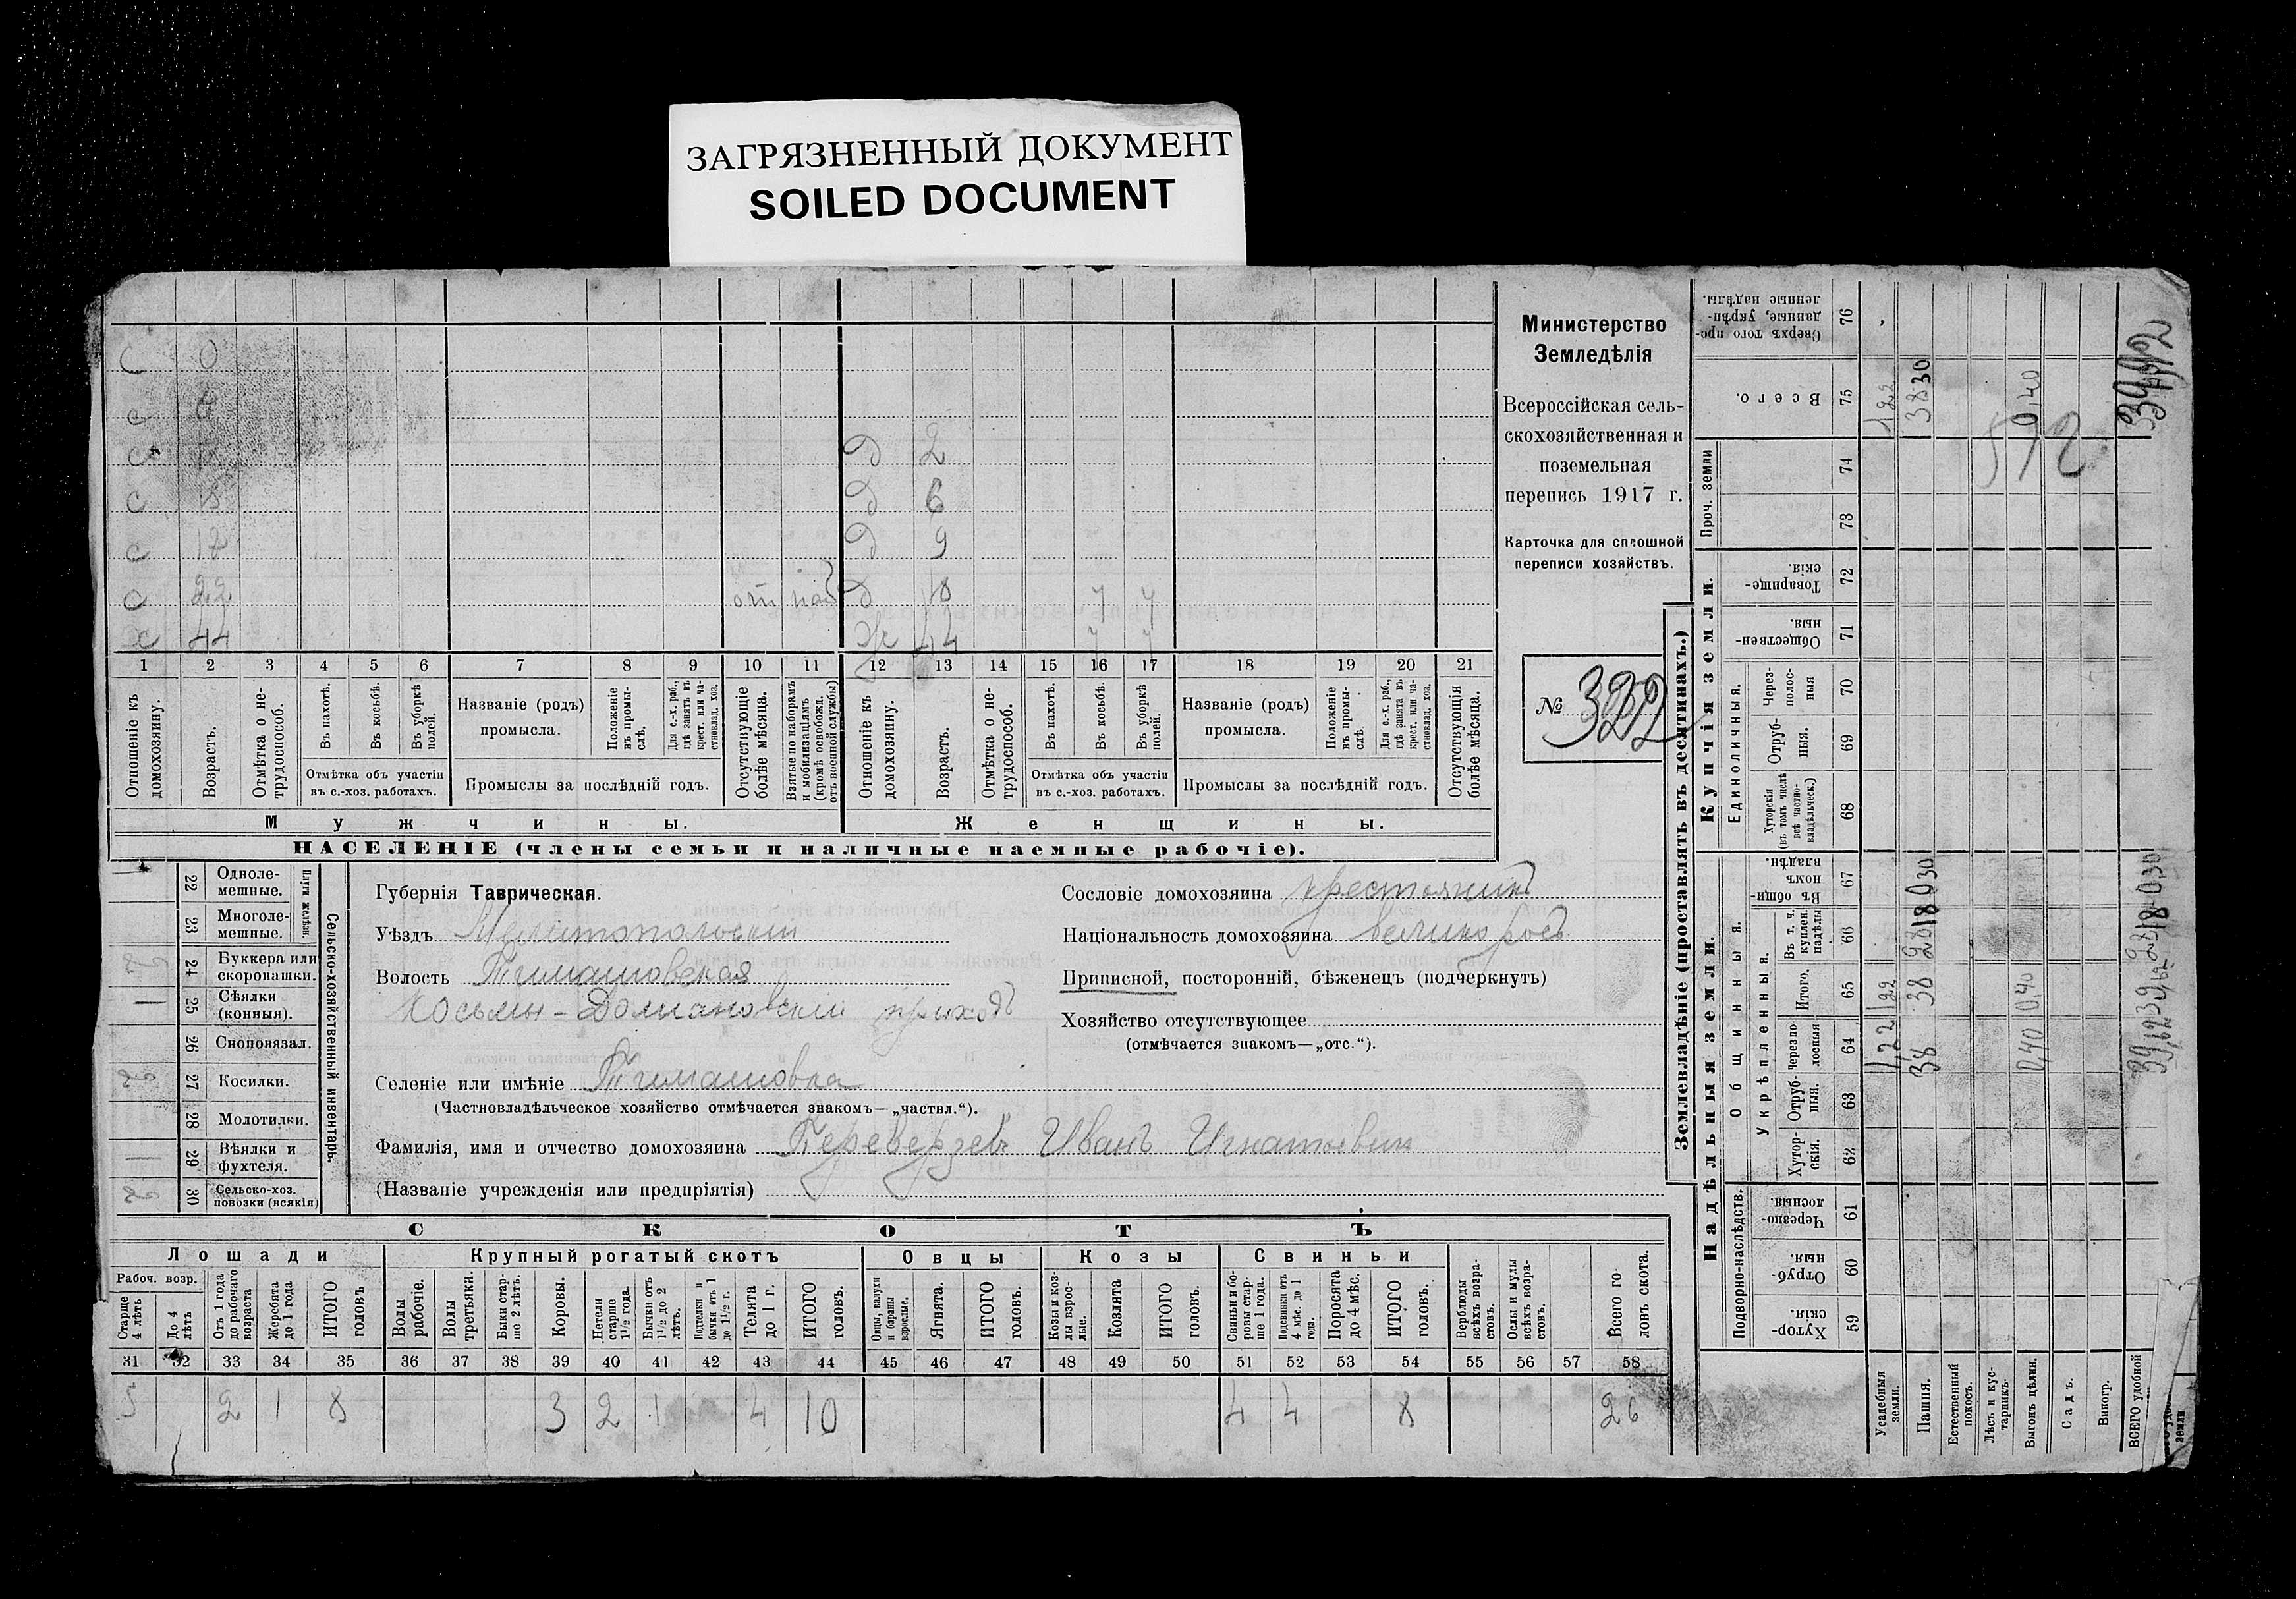 ЗАГРЯЗНЕННЫЙ ДОКУМЕНТ
SOILED DOCUMENT
с 0
с
с д 2
с 8 д 6
с 12 д 9
с 22 д 18 7 7
х 44 44
1 2 3 4 5 6 7 8 9 10 11 12 13 14 15 16 17 18 19 20 21
Отношеніе къ домохозяину.
Возрастъ.
Отмѣтка о нетрудоспособ.
Въ пахотѣ.
Въ косьбѣ.
Въ уборкѣ полей.
Отмѣтка объ участіи въ с.-хоз. работахъ.
Названіе (родъ) промысла.
Положеніе въ промыслѣ.
Для с.-х. раб., гдѣ занятъ въ крест. или частновлад. хоз.
Промыслы за послѣдній годъ.
Отсутствующіе болѣе мѣсяца.
Взятые по наборамъ и мобилизаціямъ (кромѣ освобожд. отъ военной службы)
Отношеніе къ домохозяину.
Возрастъ.
Отмѣтка о нетрудоспособ.
Въ пахотѣ.
Въ косьбѣ.
Въ уборкѣ полей.
Отмѣтка объ участіи въ с.-хоз. работахъ.
Названіе (родъ) промысла.
Положеніе въ промыслѣ.
Для с.-х. раб., гдѣ занята въ крест. или частновлад. хоз.
Промыслы за послѣдній годъ.
Отсутствующія болѣе мѣсяца.
Мужчины.
Женщины.
НАСЕЛЕНІЕ (члены семьи и наличные наемные рабочіе).
Министерство
Земледѣлія
Всероссійская сель-
скохозяйственная и
поземельная
перепись 1917 г.
Карточка для сплошной
переписи хозяйствъ.
№ 322
Сельско-хозяйственный инвентарь.
Плуги желѣзн.
1 22 Одноле-мешные.
23 Многоле-мешные.
24 Буккера или скоропашки.
1 25 Сѣялки (конныя).
26 Сноповязал.
2 27 Косилки.
28 Молотилки.
1 29 Вѣялки и фухтеля.
2 30 Сельско-хоз. повозки (всякія)
Губернія Таврическая.
Уѣздъ Мелитопольскій
Волость Тимашовская
Косьмы-Домиановскій приходъ
Селеніе или имѣніе Тимашовка
(Частновладѣльческое хозяйство отмѣчается знакомъ—„частвл.“).
Фамилія, имя и отчество домохозяина Переверзевъ Иванъ Игнатьевич
(Названіе учрежденія или предпріятія)
Сословіе домохозяина крестьянинъ
Національность домохозяина великоросъ
Приписной, посторонній, бѣженец (подчеркнуть)
Хозяйство отсутствующее
(отмѣчается знакомъ—„отс.“).
СКОТЪ
Лошади Крупный рогатый скотъ Овцы Козы Свиньи
Рабоч. возр.
Старше 4 лѣтъ
До 4 лѣтъ
Отъ 1 года до рабочаго возраста
Жеребята до 1 года
ИТОГО головъ
Волы рабочіе.
Волы третьяки.
Быки старше 2 лѣтъ.
Коровы.
Нетели старше 1½ года.
Бычки отъ 1½ до 2 лѣтъ.
Подтелки и бычки отъ 1 до 1½ г.
Телята до 1 г.
ИТОГО головъ.
Овцы, валухи и бараны взрослые.
Ягнята.
ИТОГО головъ.
Козы и козлы взрослые.
Козлята
ИТОГО головъ.
Свиньи и боровы старше 1 года.
Подсвинки отъ 4 мѣс. до 1 года.
Поросята до 4 мѣс.
ИТОГО головъ.
Верблюды всѣхъ возрастовъ.
Ослы и мулы всѣхъ возрастовъ.
Всего головъ скота.
31 32 33 34 35 36 37 38 39 40 41 42 43 44 45 46 47 48 49 50 51 52 53 54 55 56 57 58
5 2 1 8 3 2 1 4 10 4 4 8 26
Землевладѣніе (проставлять въ десятинахъ.)
Надѣльныя земли.
Купчія земли.
Подворно-наслѣдств.
Общинныя.
Укрѣпленныя.
Единоличныя.
Проч. земли
Хуторскія. 59
Отрубныя. 60
Черезполосныя. 61
Хуторскія. 62
Отрубныя. 63
Черезполосныя 64
Итого. 65
Въ т. ч. куплен. надѣлы 66
Въ общиномъ владѣн. 67
Хуторскія (въ томъ числѣ всѣ частновладѣльческ.) 68
Отрубныя. 69
Черезполосныя 70
Общественныя. 71
Товарищескія. 72
73
74
Всего. 75
Сверхъ того проданные, укрѣпленные надѣлы. 76
Усадебныя земли. 1,22 1,22 1 22
Пашня. 38 38 38 30
Естественный покосъ.
Лѣсъ и кустарникъ.
Выгонъ цѣлин. 0,40 0,40 0,40
Садъ.
Виногр.
ВСЕГО удобной 39,62
572